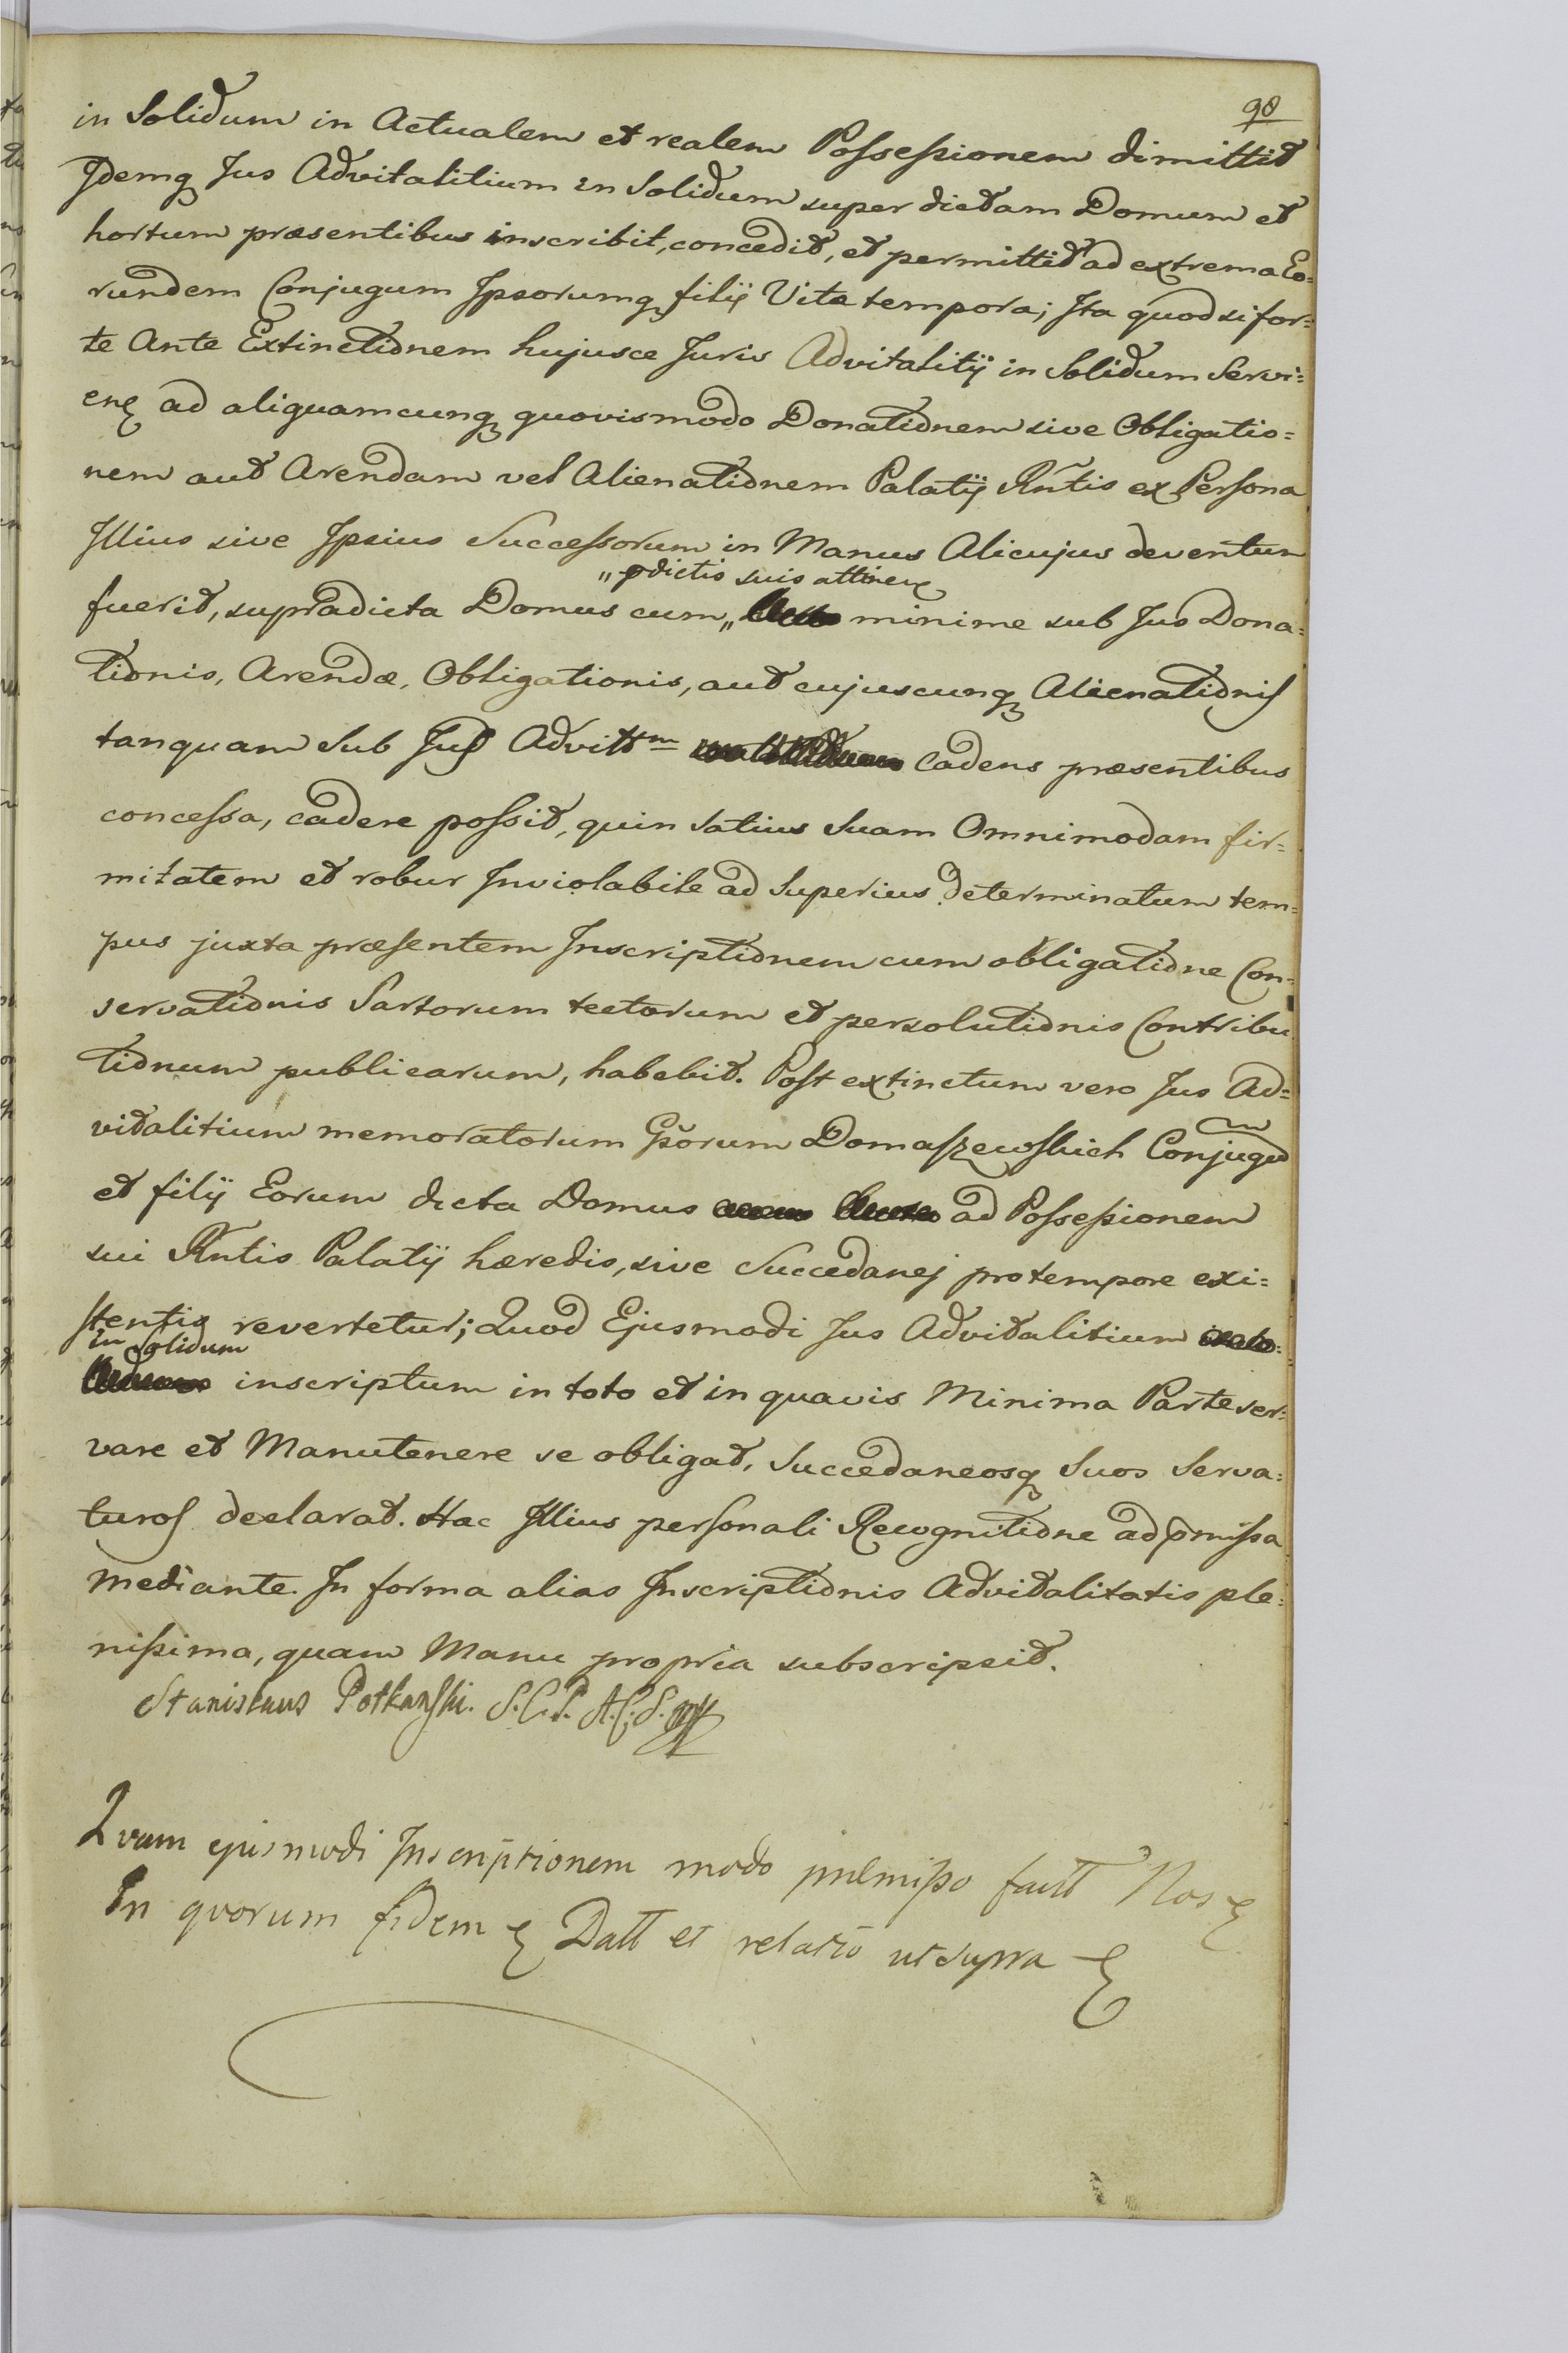 98
in Solidum in Actualem et realem Possessionem dimittit
Idemq Jus Advitalitium in Solidum super dictam Domum et
hortum præsentibus inscribit, concedit, et permittit ad extrema Eo=
rundem Conjugum Ipsorumq filij Vitæ tempora; Ita quod si for=
te Ante Extinctionem hujusce Juris Advitalitij in Solidum Servi=
en ad aliquamcunq quovismodo Donationem sive Obligatio=
nem aut Arendam vel Alienationem Palatij Rntis ex Persona
Illius sive Ipsius Successorum in Manus Alicujus deventum
„pdictis suis attinen
fuerit, supradicta Domus cum„ minime sub Jus Dona=
tionis, Arendæ, Obligationis, aut cujuscunq Alienationis
tanquam Sub Jus Advittm Cadens præsentibus
concessa, cadere possit, quin satius Suam Omnimodam fir=
mitatem et robur Inviolabile ad Superius determinatum tem=
pus juxta præsentem Inscriptionem cum obligatione Con=
servationis Sartorum tectorum et persolutionis Contribu
tionum publicarum, habebit. Post extinctum vero Jus Ad=
vitalitium memoratorum Gsorum Domaszewskich Conjugu
et filij Eorum dicta Domus ad Possessionem
sui Rntis Palatij hæredis, sive Succedanej pro tempore exi=
stentis revertetur; Quod Ejusmodi Jus Advitalitium
in Solidum
inscriptum in toto et in quavis Minima Parte ser=
vare et Manutenere se obligat, Succedaneosq Suos Serva=
turos declarat. Hac Illius personali Recognitione ad pmissa
mediante. In forma alias Inscriptionis Advitalitatis ple=
nissima, quam Manu propria subscripsit.
Stanislaus Potkanski. S.C.P. A.C.S. mp
Quam ejusmodi Inscriptionem modo præmisso factt Nos
In quorum fidem Datt et relatio ut supra